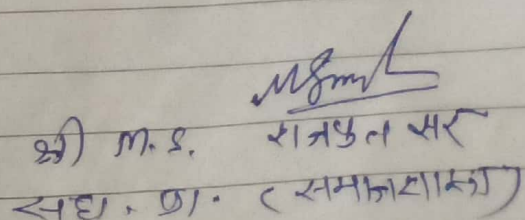 श्री M. S. राजपुत सर
सहा. प्रा. (समाजशास्त्र)